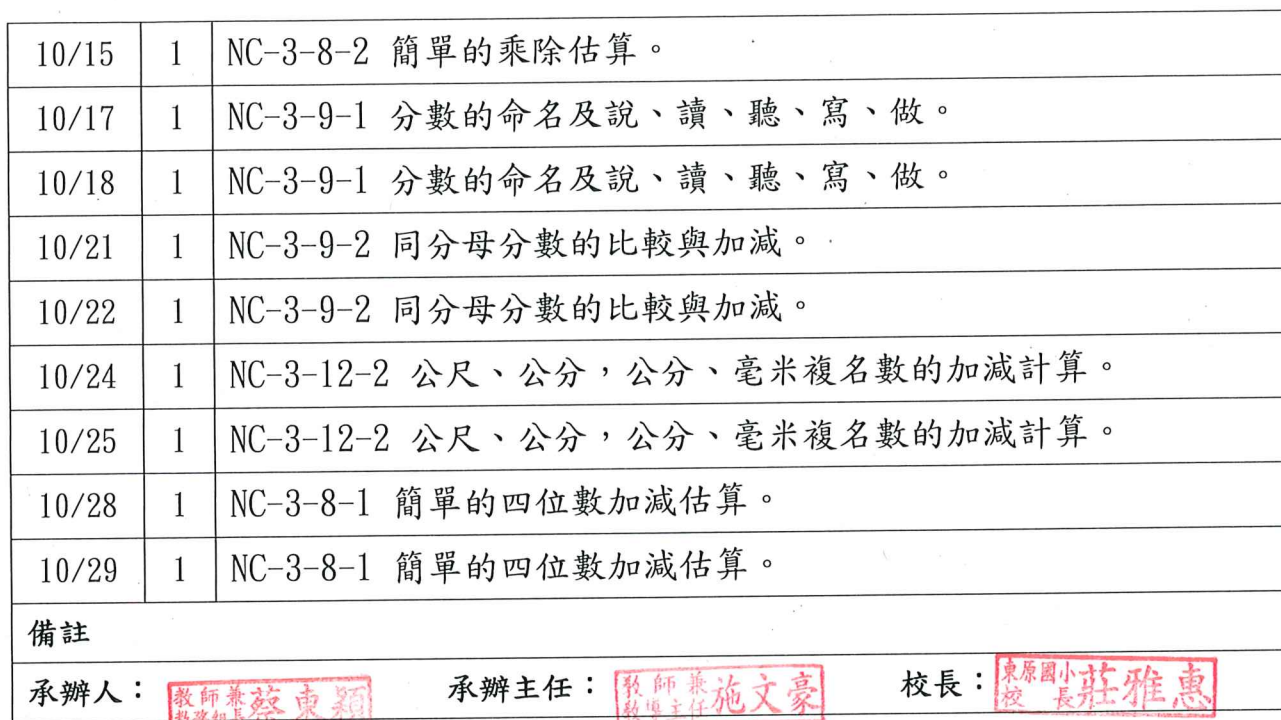 10/15 1 NC-3-8-2 簡單的乘除估算。
10/17 1 NC-3-9-1 分數的命名及說、讀、聽、寫、做。
10/18 1 NC-3-9-1 分數的命名及說、讀、聽、寫、做。
10/21 1 NC-3-9-2 同分母分數的比較與加減。
10/22 1 NC-3-9-2 同分母分數的比較與加減。
10/24 1 NC-3-12-2 公尺、公分，公分、毫米複名數的加減計算。
10/25 1 NC-3-12-2 公尺、公分，公分、毫米複名數的加減計算。
10/28 1 NC-3-8-1 簡單的四位數加減估算。
10/29 1 NC-3-8-1 簡單的四位數加減估算。
備註
承辦人： 教師兼教務組長 蔡東穎 承辦主任： 教師兼教導主任 施文豪 校長： 東原國小校長 莊雅惠